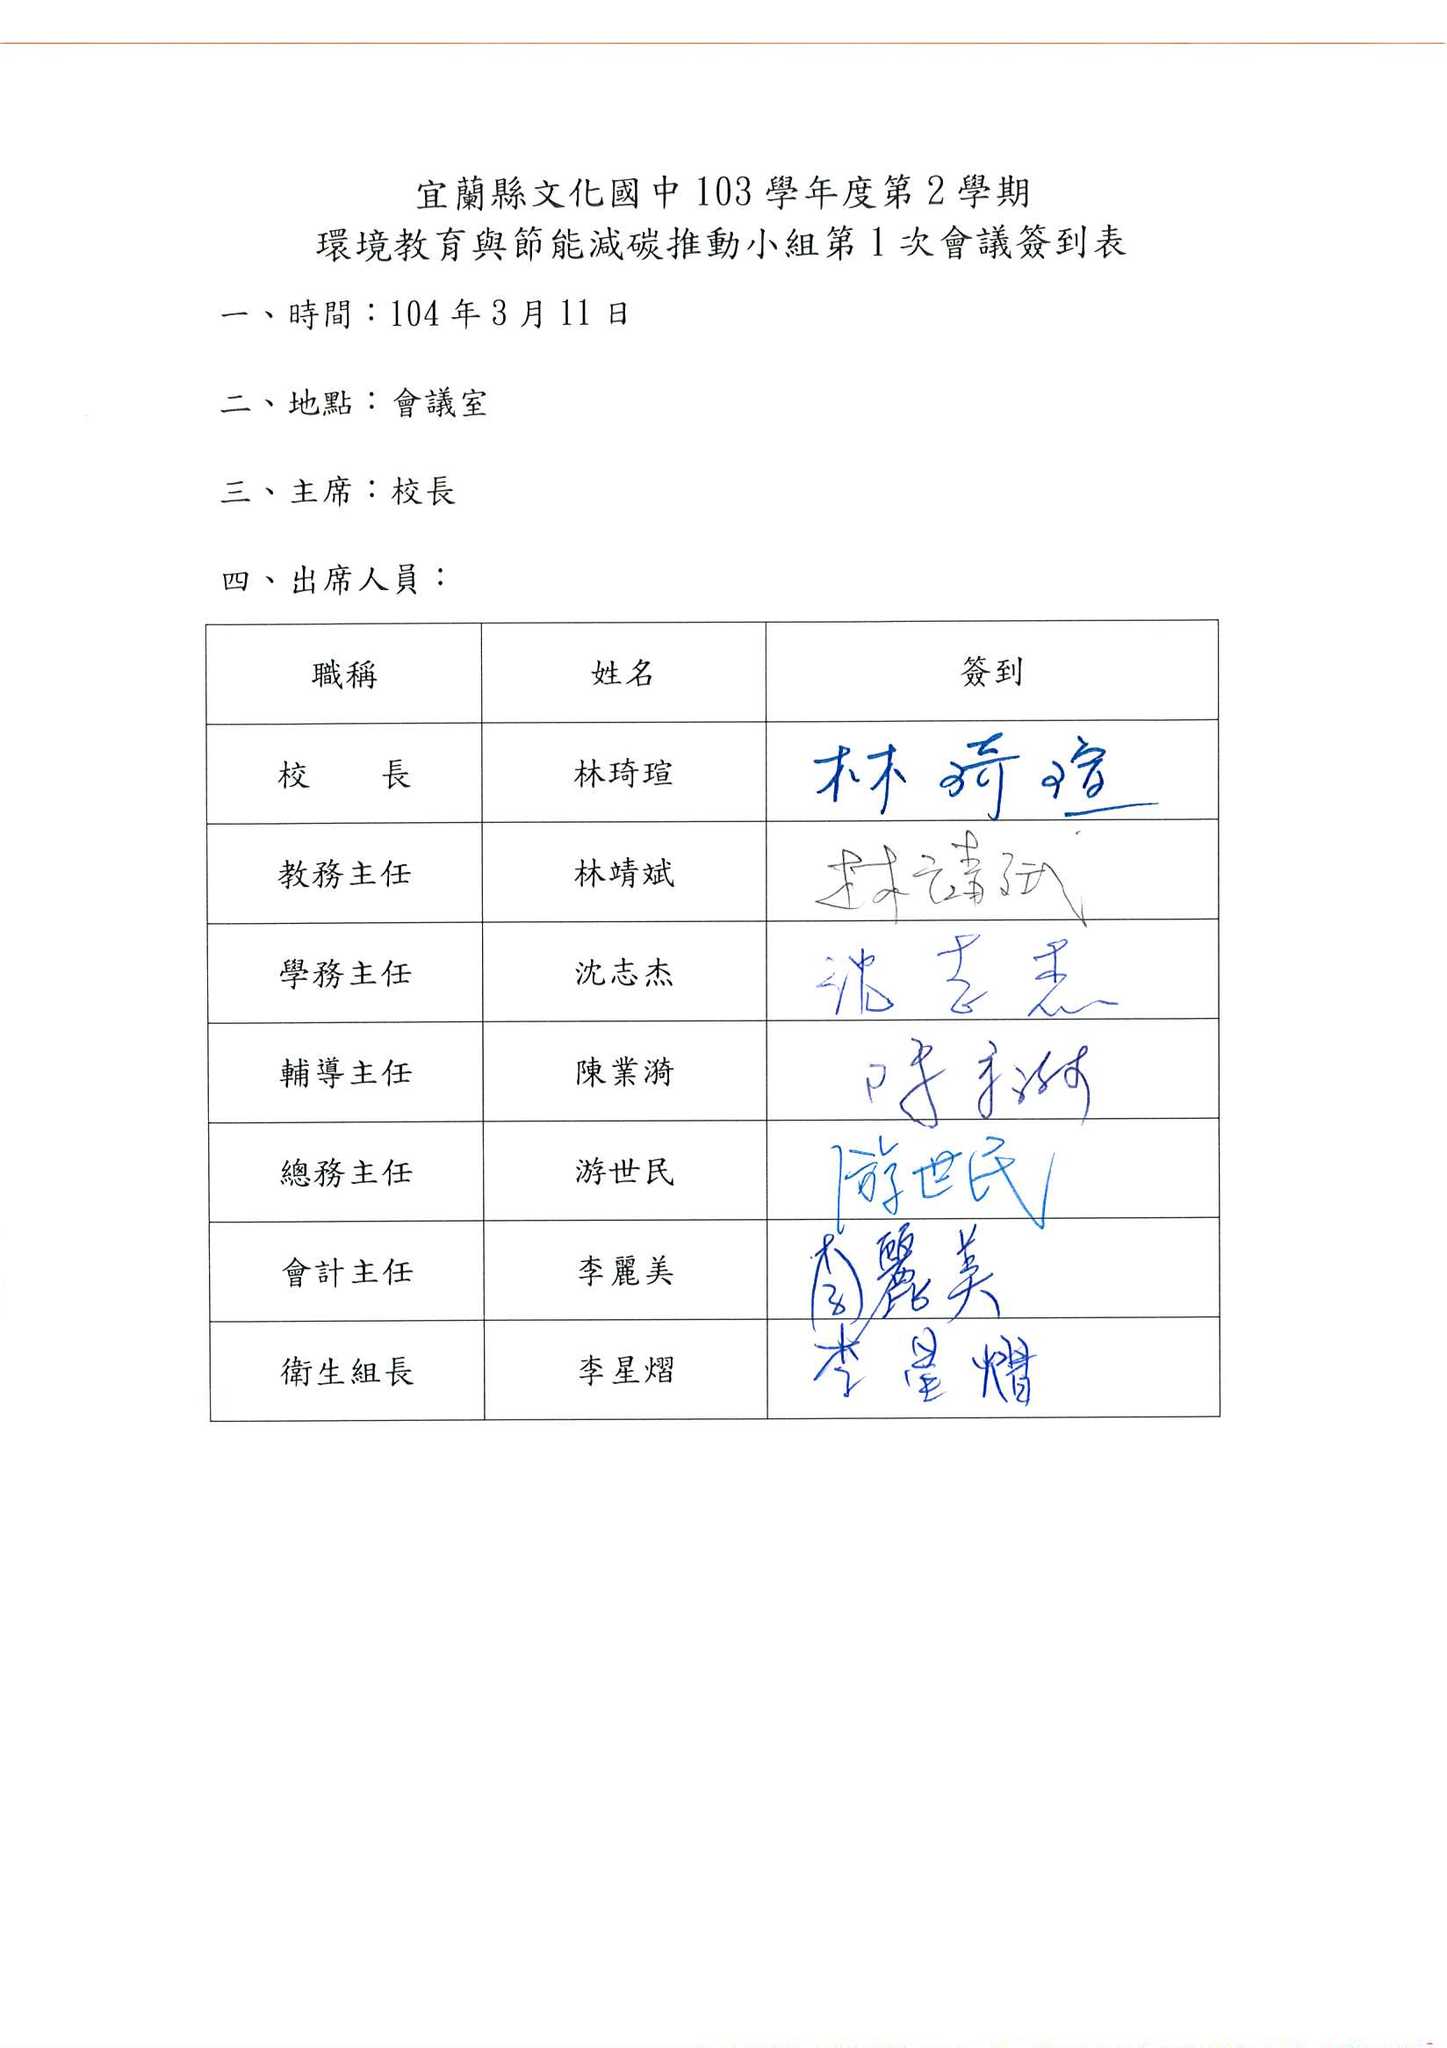 宜蘭縣文化國中 103 學年度第 2 學期
環境教育與節能減碳推動小組第 1 次會議簽到表
一、時間：104 年 3 月 11 日
二、地點：會議室
三、主席：校長
四、出席人員：
職稱 姓名 簽到
校 長 林琦瑄 林琦瑄
教務主任 林靖斌 林靖斌
學務主任 沈志杰 沈志杰
輔導主任 陳業漪 陳業漪
總務主任 游世民 游世民
會計主任 李麗美 李麗美
衛生組長 李星熠 李星熠